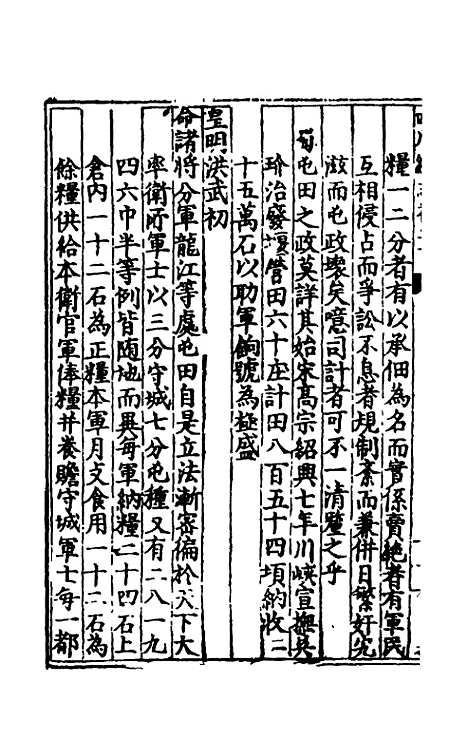 糧一二分者有以承佃為名而實係賣絶者有軍民
互相侵占而爭訟不息者規制紊而兼併日繁奸宄
滋而屯政壞矣噫司計者可不一清釐之乎
蜀屯田之政莫詳其始宋高宗紹興七年川峽宣撫吳
玠治廢堰營田六十庄計田八百五十四頃納收二
十五萬石以助軍餉號為極盛
皇明洪武初
命諸將分軍龍江等處屯田自是立法漸密徧於天下大
率衛所軍士以三分守城七分屯種又有二八一九
四六中半等例皆随地而異每軍納糧二十四石上
倉內一十二石為正糧本軍月支食用一十二石為
餘糧供給本衛官軍俸糧并養贍守城軍士每一都